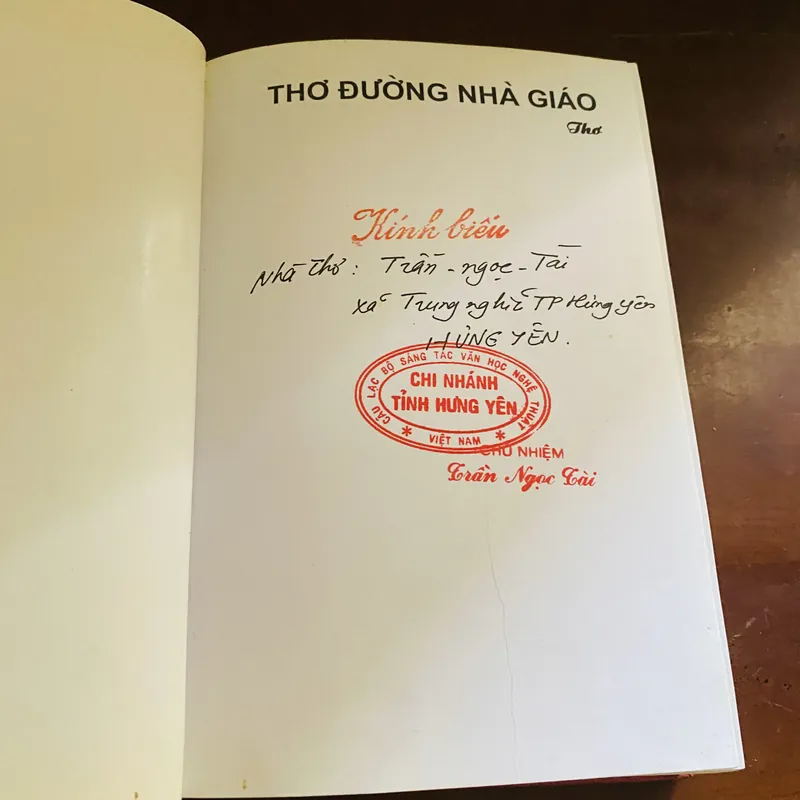 THƠ ĐƯỜNG NHÀ GIÁO
Thơ
Kính biếu
Nhà thơ: Trần - ngọc - Tài
xã Trung nghĩa TP Hưng yên
HƯNG YÊN.
CÂU LẠC BỘ SÁNG TÁC VĂN HỌC NGHỆ THUẬT
CHI NHÁNH
TỈNH HƯNG YÊN
* VIỆT NAM *
CHỦ NHIỆM
Trần Ngọc Tài